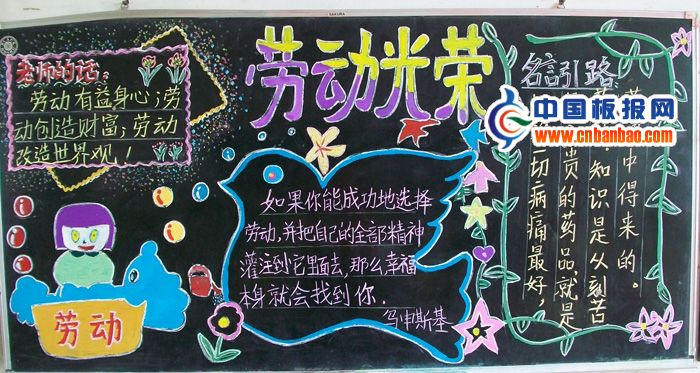 SAKURA
劳动光荣
老师的话：
劳动有益身心；劳
动创造财富；劳动
改造世界观！
如果你能成功地选择
劳动，并把自己的全部精神
灌注到它里面去，那么幸福
本身就会找到你．
乌申斯基
劳动
名言引路
中国板报网
www.cnbanbao.com
中得来的。
知识是从刻苦
贵的药品，就是
切病痛最好，